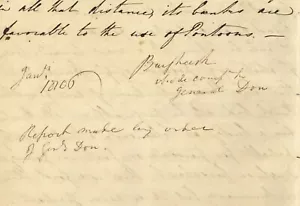 in all that distance, its banks are
favorable to the use of Pontoons. —
Jany.
1806
Burghersh
made compy. to
General Don
Report made by order
of Genl. Don.